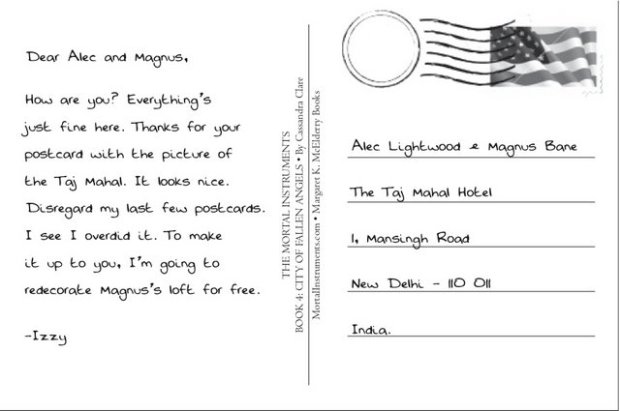 Dear Alec and Magnus,
How are you? Everything's
just fine here. Thanks for your
postcard with the picture of
the Taj Mahal. It looks nice.
Disregard my last few postcards.
I see I overdid it. To make
it up to you, I'm going to
redecorate Magnus's loft for free.
-Izzy
THE MORTAL INSTRUMENTS
BOOK 4: CITY OF FALLEN ANGELS • By Cassandra Clare
MortalInstruments.com • Margaret K. McElderry Books
Alec Lightwood & Magnus Bane
The Taj Mahal Hotel
1, Mansingh Road
New Delhi - 110 011
India.